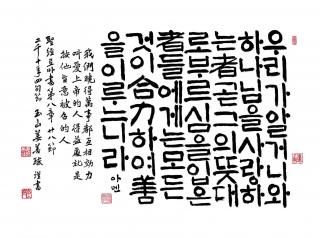 우리가알거니와
하나님을사랑하
는者곧그의뜻대
로부르심을입은
者들에게는모든
것이合力하여善
을이루느니라
아멘
我們曉得萬事都互相效力
叫愛上帝的人得益處就是
按他旨意被召的人
聖經로마書第八章廿八節
二千十年四旬節 玉山 姜善 謹書